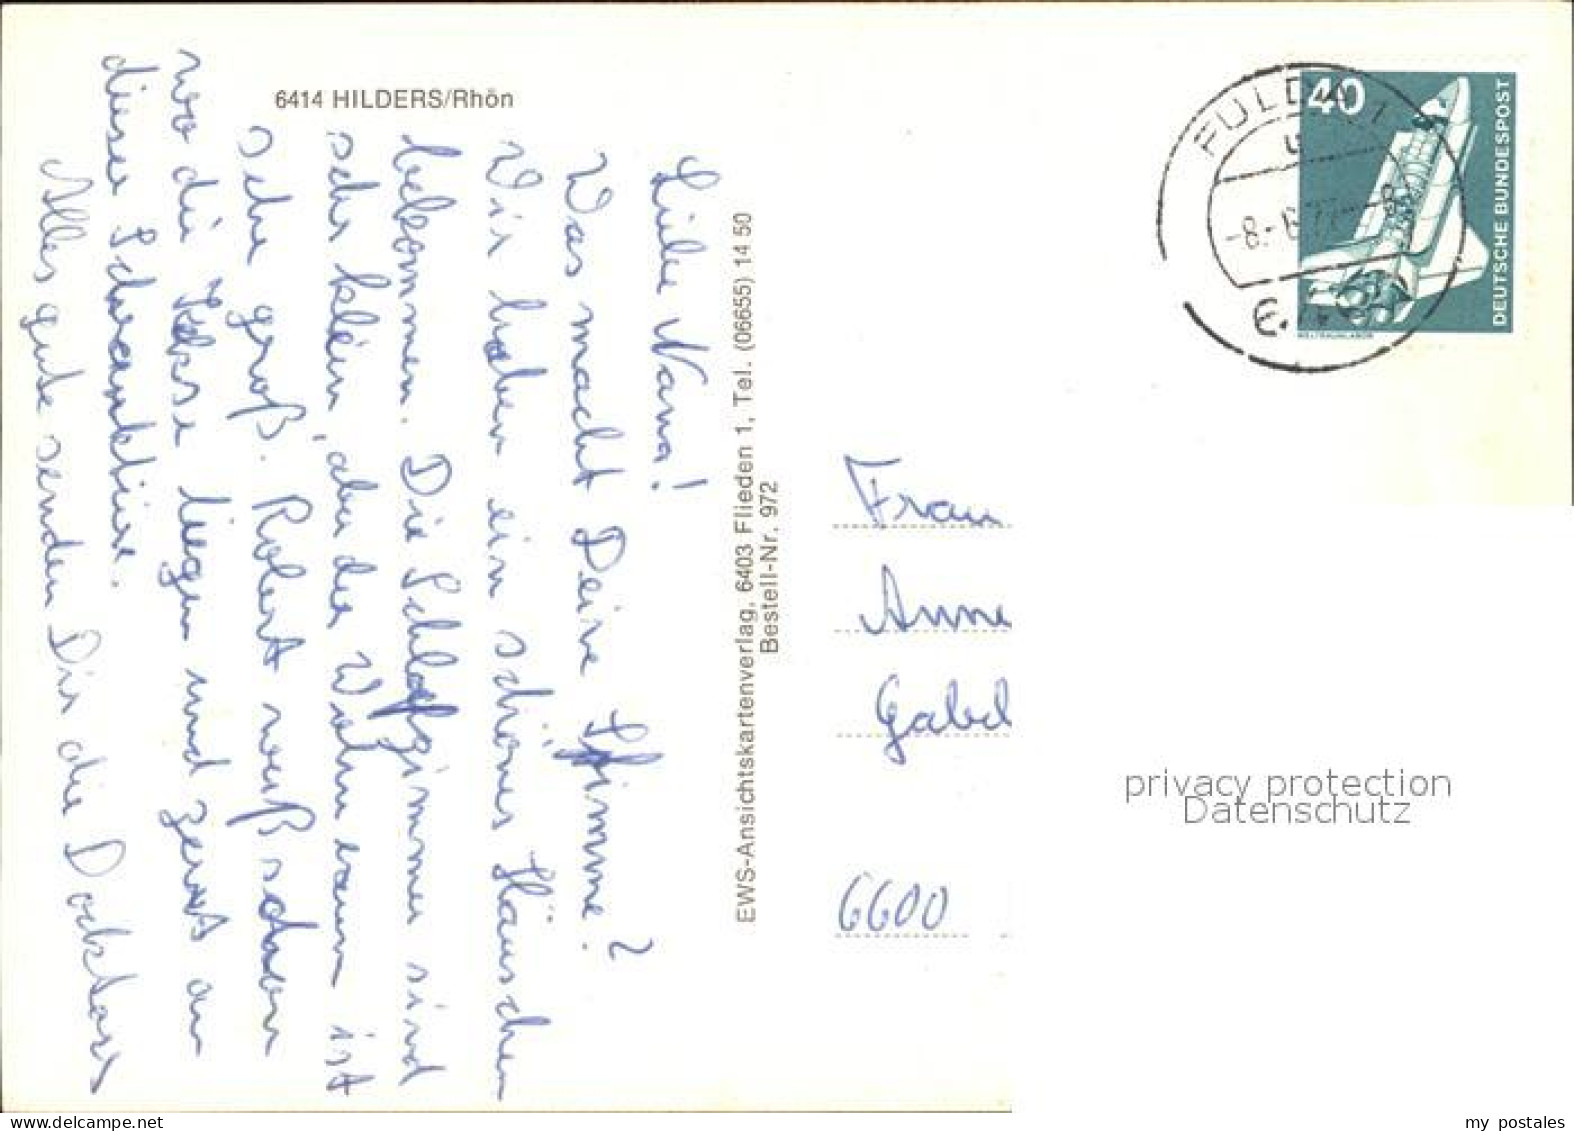 6414 HILDERS/Rhön
Liebe Nana!
Was macht Deine Stimme?
Wir haben ein schönes Häuschen
bekommen. Die Schlafzimmer sind
sehr klein, aber der Wohnraum ist
sehr groß. Robert weiß schon
wo die Kekse liegen und zerrt an
dieser Schranktüre.
Alles gute senden Dir die Docktors
EWS-Ansichtskartenverlag, 6403 Flieden 1, Tel. (06655) 14 50
Bestell-Nr. 972
40
DEUTSCHE BUNDESPOST
WELTRAUMLABOR
FULDA 1
-8.-6.77.-8
Frau
Anne
Gabel
6600
privacy protection
Datenschutz
my postales